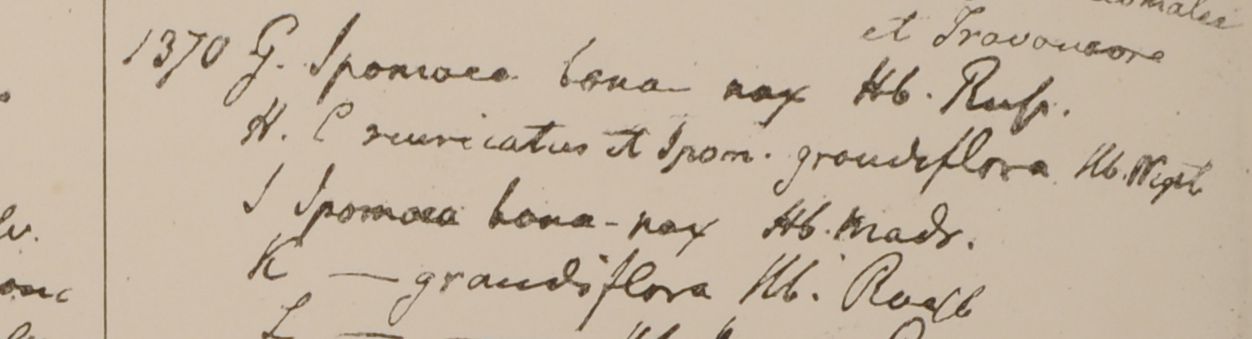 et Travancore
1370 G. Ipomoea bona nox Hb. Russ.
H. C muricatus et Ipom. grandiflora Hb. Wight
I Ipomoea bona-nox Hb. Madr.
K — grandiflora Hb. Roxb
L —